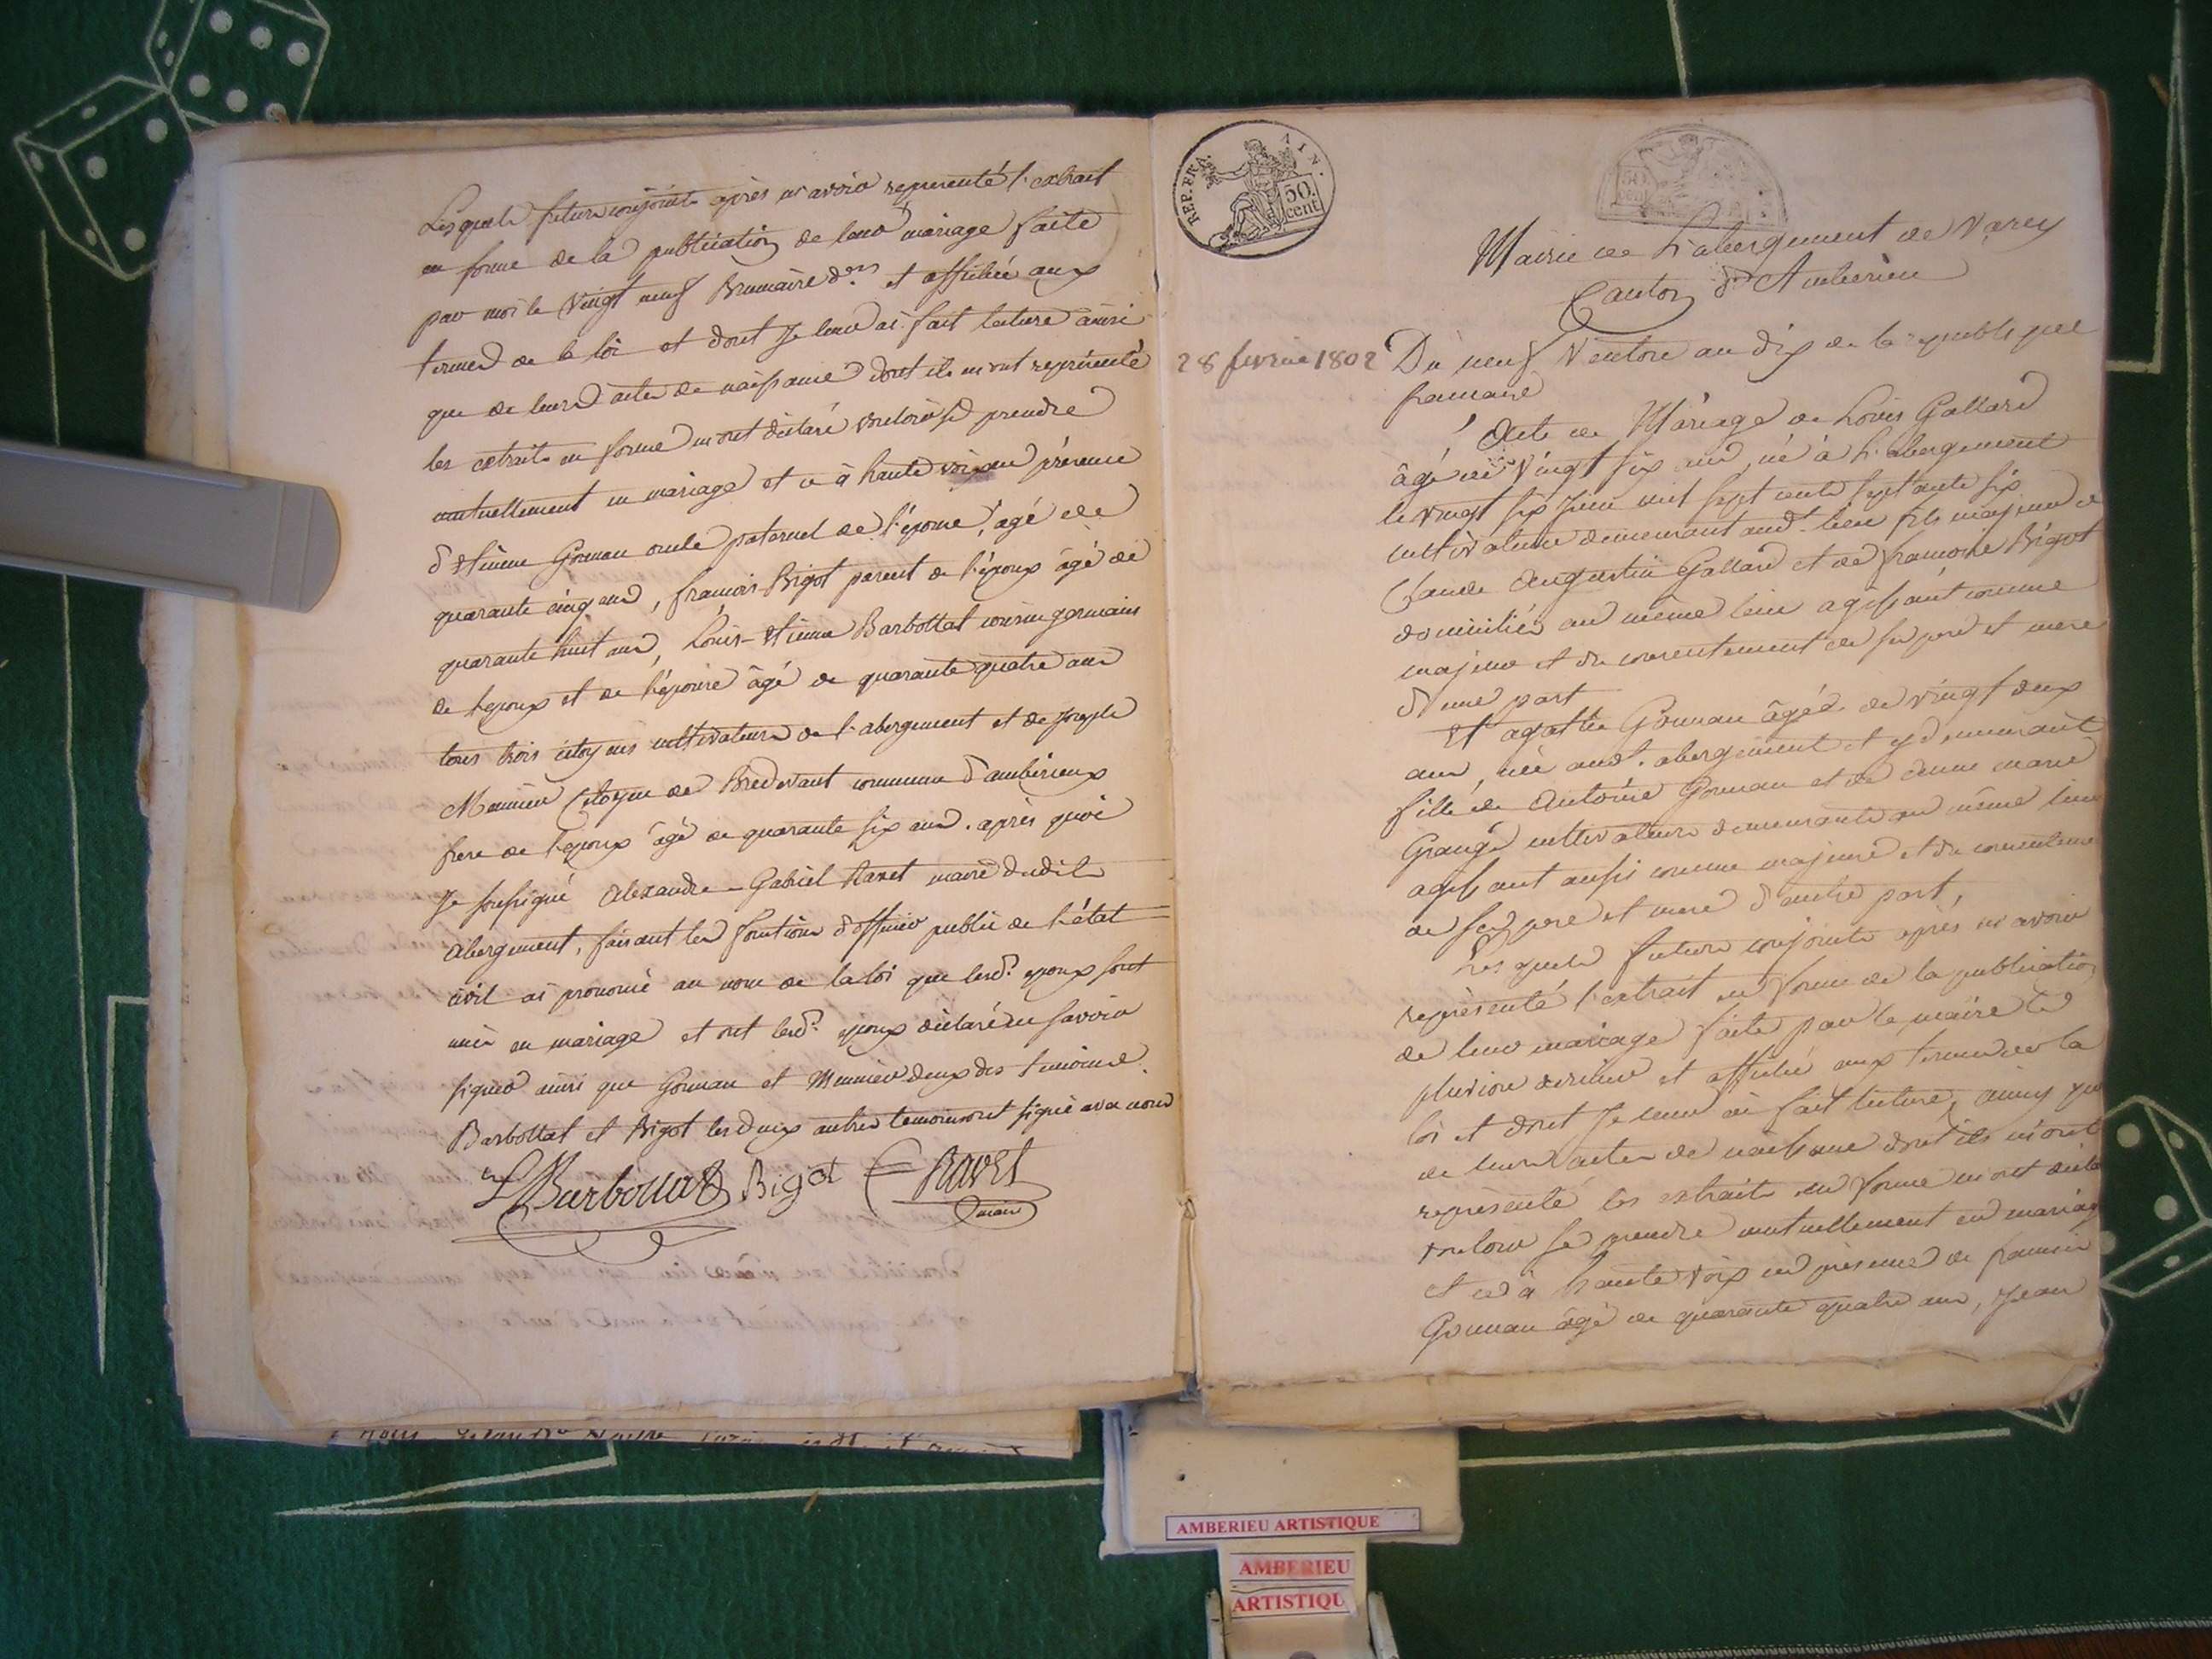 Lesquels futurs conjoints après m'avoir representé l'extrait
en forme de la publication de leur mariage faite
par moi le vingt neuf Brumaire d.er et affichée aux
termes de la loi et dont Je leur ai fait lecture ainsi
que de leurs actes de naissance dont ils m'ont représenté
les extraits en forme m'ont déclaré vouloir se prendre
mutuellement en mariage et ce à haute voix en présence
d'Etienne Gonnan oncle paternel de l'épouse, agé de
quarante cinq ans, francois Bigot parent de l'époux âgé de
quarante huit ans, Louis-Etienne Barbottat cousin germain
de l'epoux et de l'épouse âgé de quarante quatre ans
tous trois citoyens cultivateurs de l'abergement et de Joseph
Meunier Citoyen de Bredevant commune d'ambérieux
frere de l'epoux âgé de quarante six ans. après quoi
Je soussigné Alexandre-Gabriel Ravet maire dudit
abergement, faisant les fonctions d'officier public de l'état
civil ai prononcé au nom de la loi que lesd. epoux sont
unis en mariage et ont lesd. epoux déclaré ne savoir
signer ainsi que Gonnan et Meunier deux des temoins.
Barbottat et Bigot les deux autres temoins ont signé avec nous
L Barbottat Bigot Ravet
maire
REP. FRA. AIN.
50. cent
50. cen
Mairie de L'abergement de Varey
Canton d'Amberieu
28 fevrier 1802
Du neuf Ventose an dix de la republique
francaise
Acte de Mariage de Louis Gallard
âgé de vingt six ans, né à L'abergement
le vingt six Juin mil sept cents septante six
cultivateur demeurant aud. lieu fils majeur de
Claude Augustin Gallard et de francoise Bigot
domiciliés au même lieu agissant comme
majeur et du consentement de ses pere et mere
d'une part
Et agathe Gonnan âgée de vingt deux
ans, née aud. abergement et y demeurant
fille de Antoine Gonnan et de anne marie
Grangé cultivateurs demeurants au même lieu
agissant aussi comme majeure et du consenteme
de ses pere et mere d'autre part,
Lesquels futurs conjoints après m'avoir
représenté l'extrait en forme de la publication
de leur mariage faite par le maire le
pluviose dernier et affichée aux termes de la
loi et dont Je leur ai fait lecture, ainsy que
de leurs actes de naissance dont ils m'ont
représenté les extraits en forme m'ont décla
vouloir se prendre mutuellement en mariag
et ce à haute voix en présence de francois
Gonnan âgé de quarante quatre ans, Jean
AMBERIEU ARTISTIQUE
AMBERIEU
ARTISTIQU